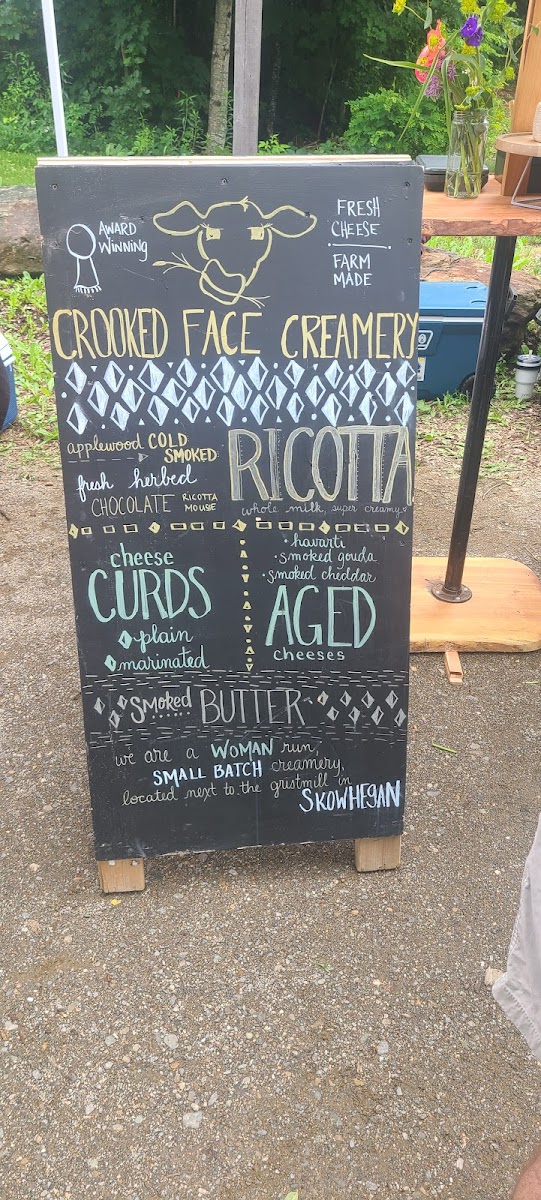 AWARD
WINNING
FRESH
CHEESE
FARM
MADE
CROOKED FACE CREAMERY
applewood COLD
SMOKED
fresh herbed
CHOCOLATE RICOTTA
MOUSIE
RICOTTA
whole milk, super creamy
cheese
CURDS
plain
marinated
• havarti
• smoked gouda
• smoked cheddar
AGED
cheeses
Smoked BUTTER
we are a WOMAN run,
SMALL BATCH creamery,
located next to the gristmill in
SKOWHEGAN